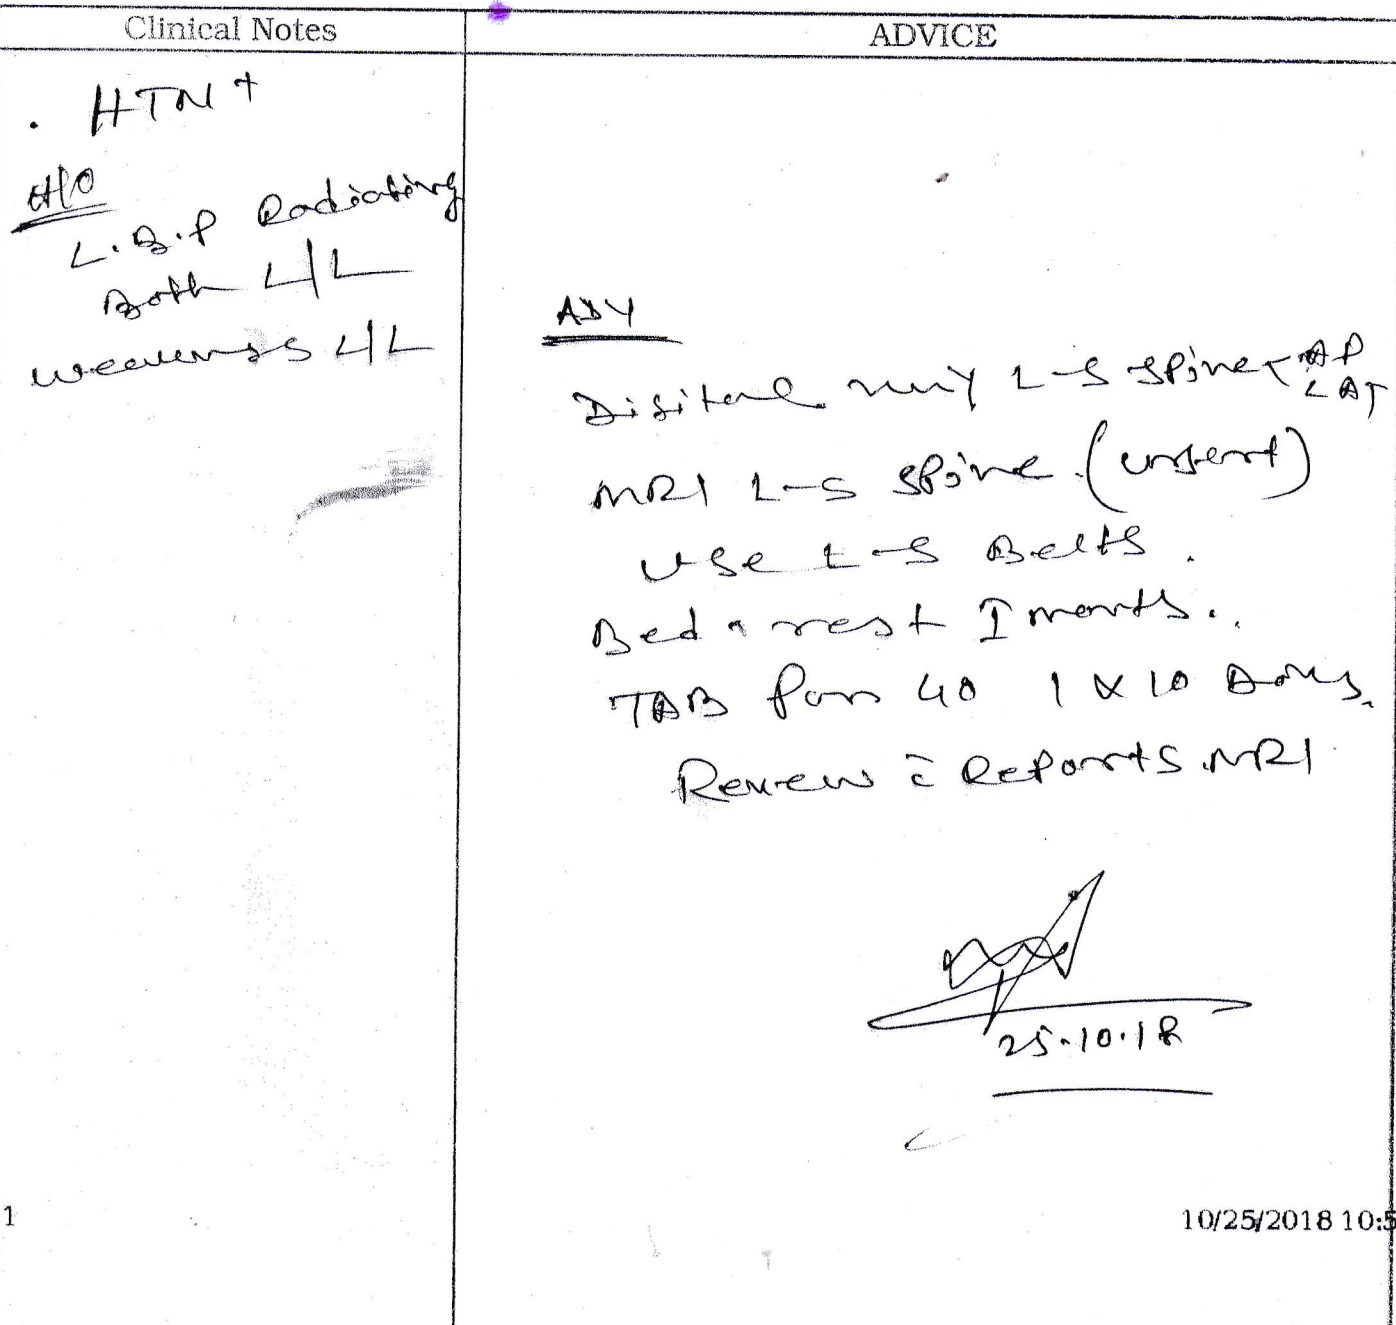 Clinical Notes
ADVICE
. HTN +
H/O
L.B.P Radiating
Both L/L
weakness L/L
ADV
Digital xray L-S spine AP
LAT
MRI L-S spine. (urgent)
Use L-S Belts.
Bed rest I month.
TAB Pan 40 1 x 10 Days.
Review c̄ Reports MRI
25.10.18
1
10/25/2018 10:5